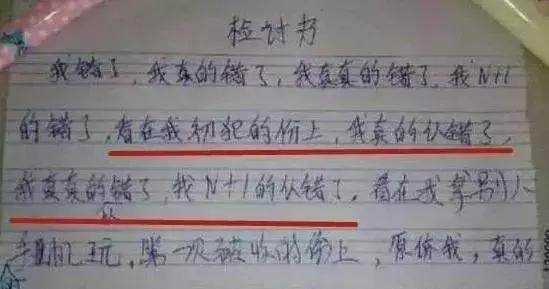 检讨书
我错了，我真的错了，我真真的错了，我N+1
的错了，看在我初犯的份上，我真的认错了，
我真真的认错了，我N+1的认错了，看在我拿别人
手机玩，第一次被收的份上，原谅我，真的